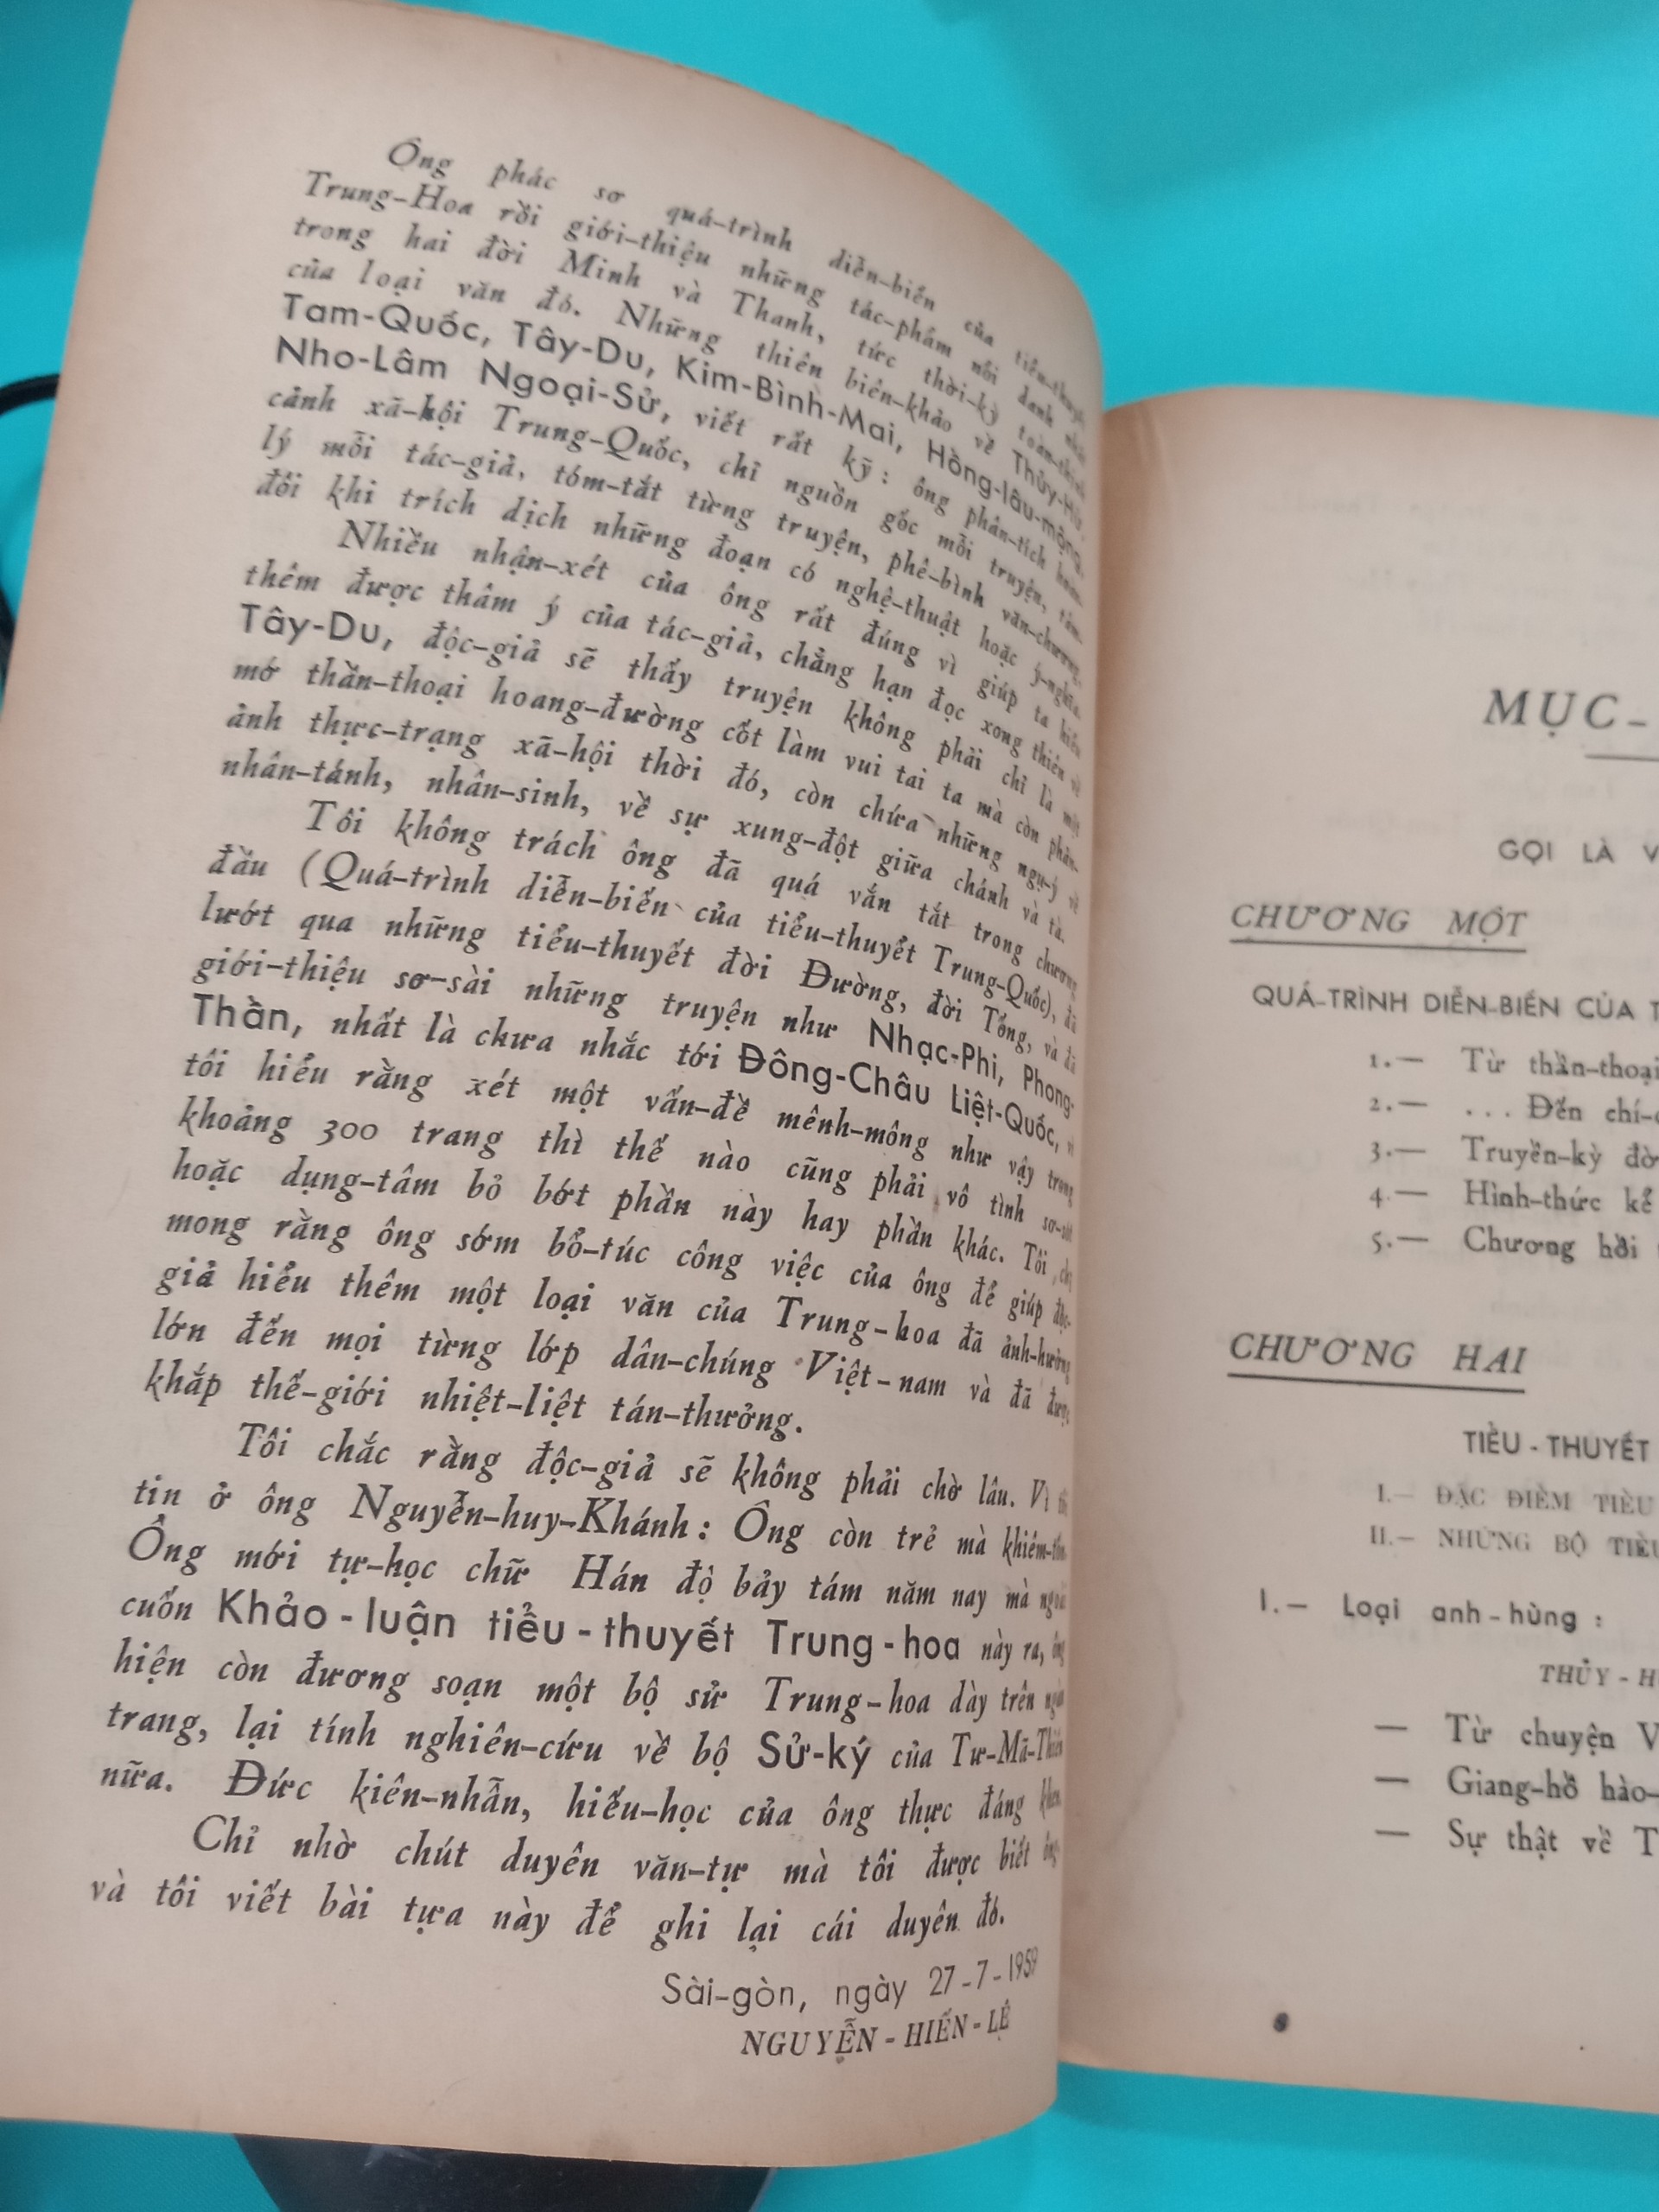 Ông phác sơ quá-trình diễn-biến của tiểu-thuyết
Trung-Hoa rồi giới-thiệu những tác-phẩm nổi danh nhất
trong hai đời Minh và Thanh, tức thời-kỳ toàn-thịnh
của loại văn đó. Những thiên biên-khảo về Thủy-Hử,
Tam-Quốc, Tây-Du, Kim-Bình-Mai, Hồng-lâu-mộng,
Nho-Lâm Ngoại-Sử, viết rất kỹ: ông phân-tích hoàn-
cảnh xã-hội Trung-Quốc, chỉ nguồn gốc mỗi truyện, tâm-
lý mỗi tác-giả, tóm-tắt từng truyện, phê-bình văn-chương,
đôi khi trích dịch những đoạn có nghệ-thuật hoặc ý-nghĩa.
Nhiều nhận-xét của ông rất đúng vì giúp ta hiểu
thêm được thâm ý của tác-giả, chẳng hạn đọc xong thiên về
Tây-Du, độc-giả sẽ thấy truyện không phải chỉ là một
mớ thần-thoại hoang-đường cốt làm vui tai ta mà còn phản-
ảnh thực-trạng xã-hội thời đó, còn chứa những ngụ-ý về
nhân-tánh, nhân-sinh, về sự xung-đột giữa chánh và tà.
Tôi không trách ông đã quá vắn tắt trong chương
đầu (Quá-trình diễn-biến của tiểu-thuyết Trung-Quốc), đã
lướt qua những tiểu-thuyết đời Đường, đời Tống, và đã
giới-thiệu sơ-sài những truyện như Nhạc-Phi, Phong-
Thần, nhất là chưa nhắc tới Đông-Châu Liệt-Quốc, vì
tôi hiểu rằng xét một vấn-đề mênh-mông như vậy trong
khoảng 300 trang thì thế nào cũng phải vô tình sơ-sót
hoặc dụng-tâm bỏ bớt phần này hay phần khác. Tôi chỉ
mong rằng ông sớm bổ-túc công việc của ông để giúp độc-
giả hiểu thêm một loại văn của Trung-hoa đã ảnh-hưởng
lớn đến mọi từng lớp dân-chúng Việt-nam và đã được
khắp thế-giới nhiệt-liệt tán-thưởng.
Tôi chắc rằng độc-giả sẽ không phải chờ lâu. Vì tôi
tin ở ông Nguyễn-huy-Khánh: Ông còn trẻ mà khiêm-tốn.
Ông mới tự-học chữ Hán độ bảy tám năm nay mà ngoài
cuốn Khảo-luận tiểu-thuyết Trung-hoa này ra, ông
hiện còn đương soạn một bộ sử Trung-hoa dày trên ngàn
trang, lại tính nghiên-cứu về bộ Sử-ký của Tư-Mã-Thiên
nữa. Đức kiên-nhẫn, hiếu-học của ông thực đáng khen.
Chỉ nhờ chút duyên văn-tự mà tôi được biết ông
và tôi viết bài tựa này để ghi lại cái duyên đó.
Sài-gòn, ngày 27-7-1959
NGUYỄN-HIẾN-LÊ
MỤC-
GỌI LÀ
CHƯƠNG MỘT
QUÁ-TRÌNH DIỄN-BIẾN CỦA
1.— Từ thần-thoại
2.— ... Đến
3.— Truyền-kỳ
4.— Hình-thức
5.— Chương hồi
CHƯƠNG HAI
TIỂU-THUYẾT
I.— ĐẶC ĐIỂM TIỂU
II.— NHỮNG BỘ TIỂU
1.— Loại anh-hùng :
THỦY-H
— Từ chuyện
— Giang-hồ hào-
— Sự thật về
8